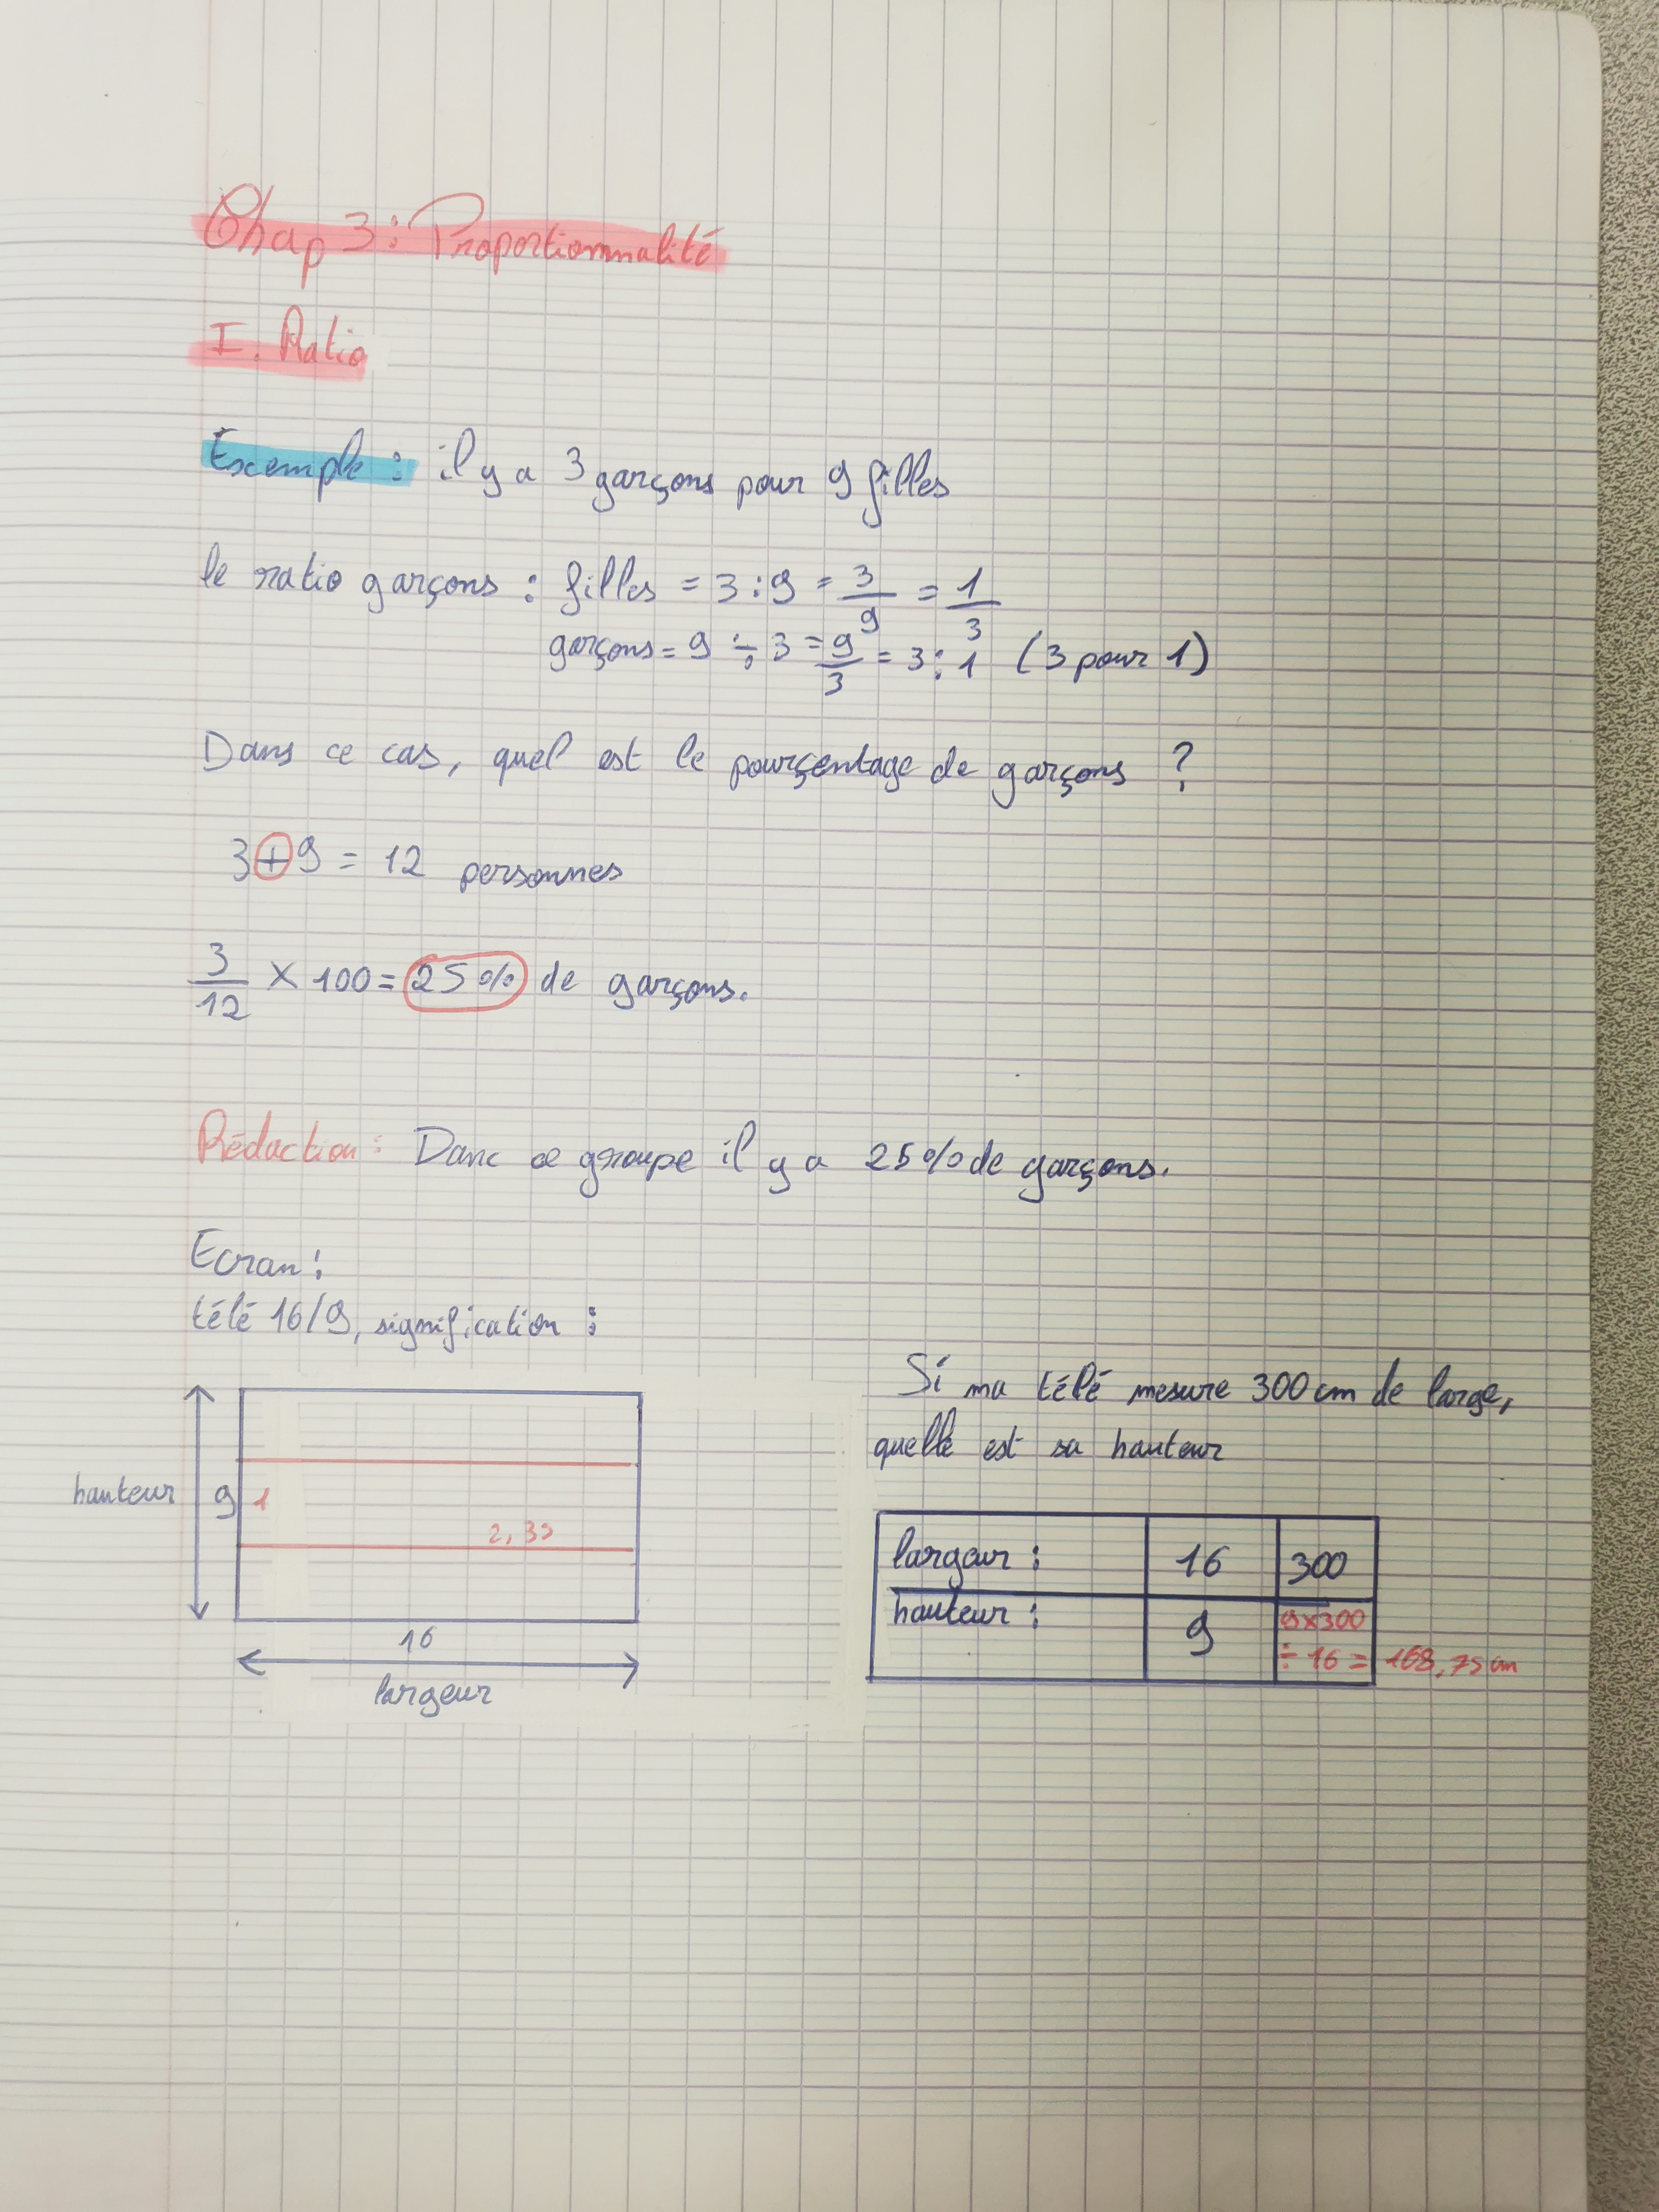 Chap 3: Proportionnalité
I. Ratio
Exemple: il y a 3 garçons pour 9 filles
le ratio garçons : filles = 3:9 = 3/9 = 1/3
garçons = 9 ÷ 3 = 9/3 = 3:1 (3 pour 1)
Dans ce cas, quel est le pourçentage de garçons ?
3+9 = 12 personnes
3/12 × 100 = 25% de garçons.
Rédaction: Danc ce groupe il y a 25% de garçons.
Ecran:
télé 16/9, signification :
hauteur 9 1
2,35
16
largeur
Si ma télé mesure 300 cm de large,
quelle est sa hauteur
largeur : 16 300
hauteur : 9 9×300
÷ 16 = 168,75 cm